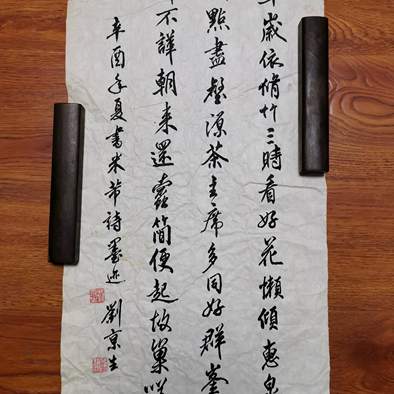 歲依脩竹三時看好花懶傾惠泉
點盡壑源茶主席多同好群峯
不譁朝來還蠹簡便起故巢嗟
辛酉年夏書米芾詩墨迹 劉京生